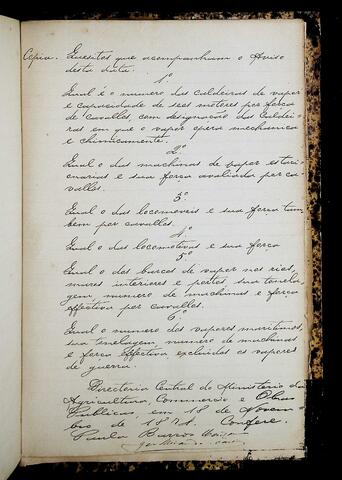 Copia. Quesitos que acompanham o Aviso
desta data.
1º
Qual é o numero das Caldeiras de vapor
e capacidade de seos motores por força
de Cavallos, com designação das Caldei-
ras em que o vapor opera mechanica
e chimicamente.
2º
Qual o das machinas de vapor estaci-
onarias e sua força avaliada por ca-
vallos.
3º
Qual o das locomoveis e sua força tam-
bem por cavallos.
4º
Qual o das locomotivas e sua força
5º
Qual o das barcas de vapor nos rios,
mares interiores e portos, sua tonela-
gem, numero de machinas e força
effectiva por cavallos.
6º
Qual o numero dos vapores maritimos,
sua tonelagem, numero de machinas
e força effectiva excluidos os vapores
de guerra.
Directoria Central do Ministerio da
Agricultura, Commercio e Obras
Publicas, em 18 de Novem
bro de 1871. Confere.
Paula Barros